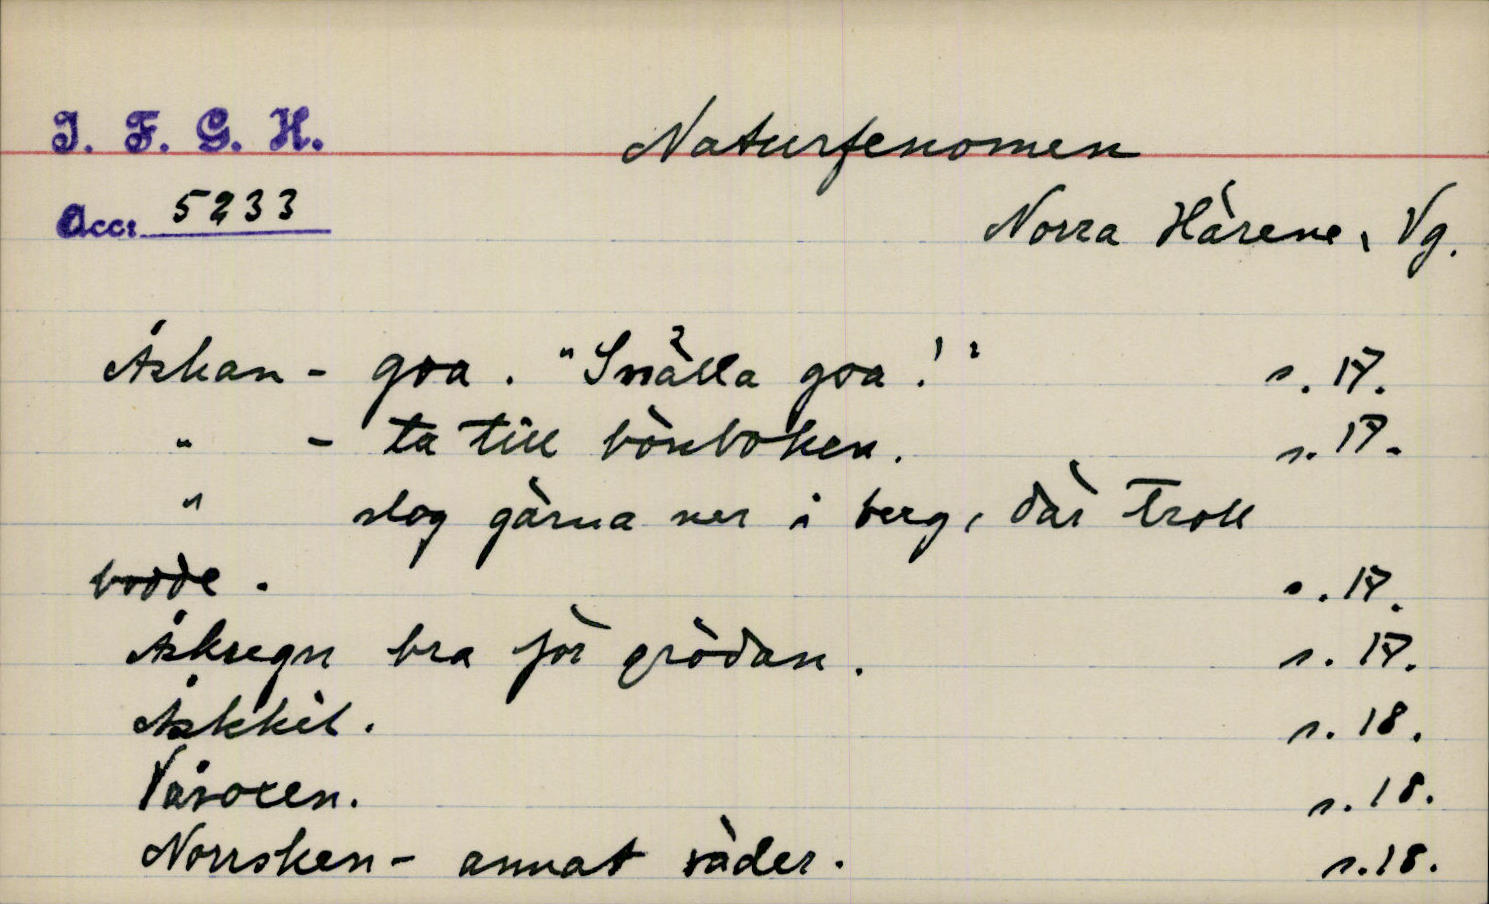 I. F. G. H.
Naturfenomen
Acc: 5233
Norra Härene, Vg.
Åskan - goa. "Snälla goa!" s. 17.
" - ta till bönboken. s. 17.
" slog gärna ner i berg, där troll
bodde. s. 17.
Åskregn bra för grödan. s. 17.
Åskkil. s. 18.
Våroxen. s. 18.
Norrsken - annat väder. s. 18.